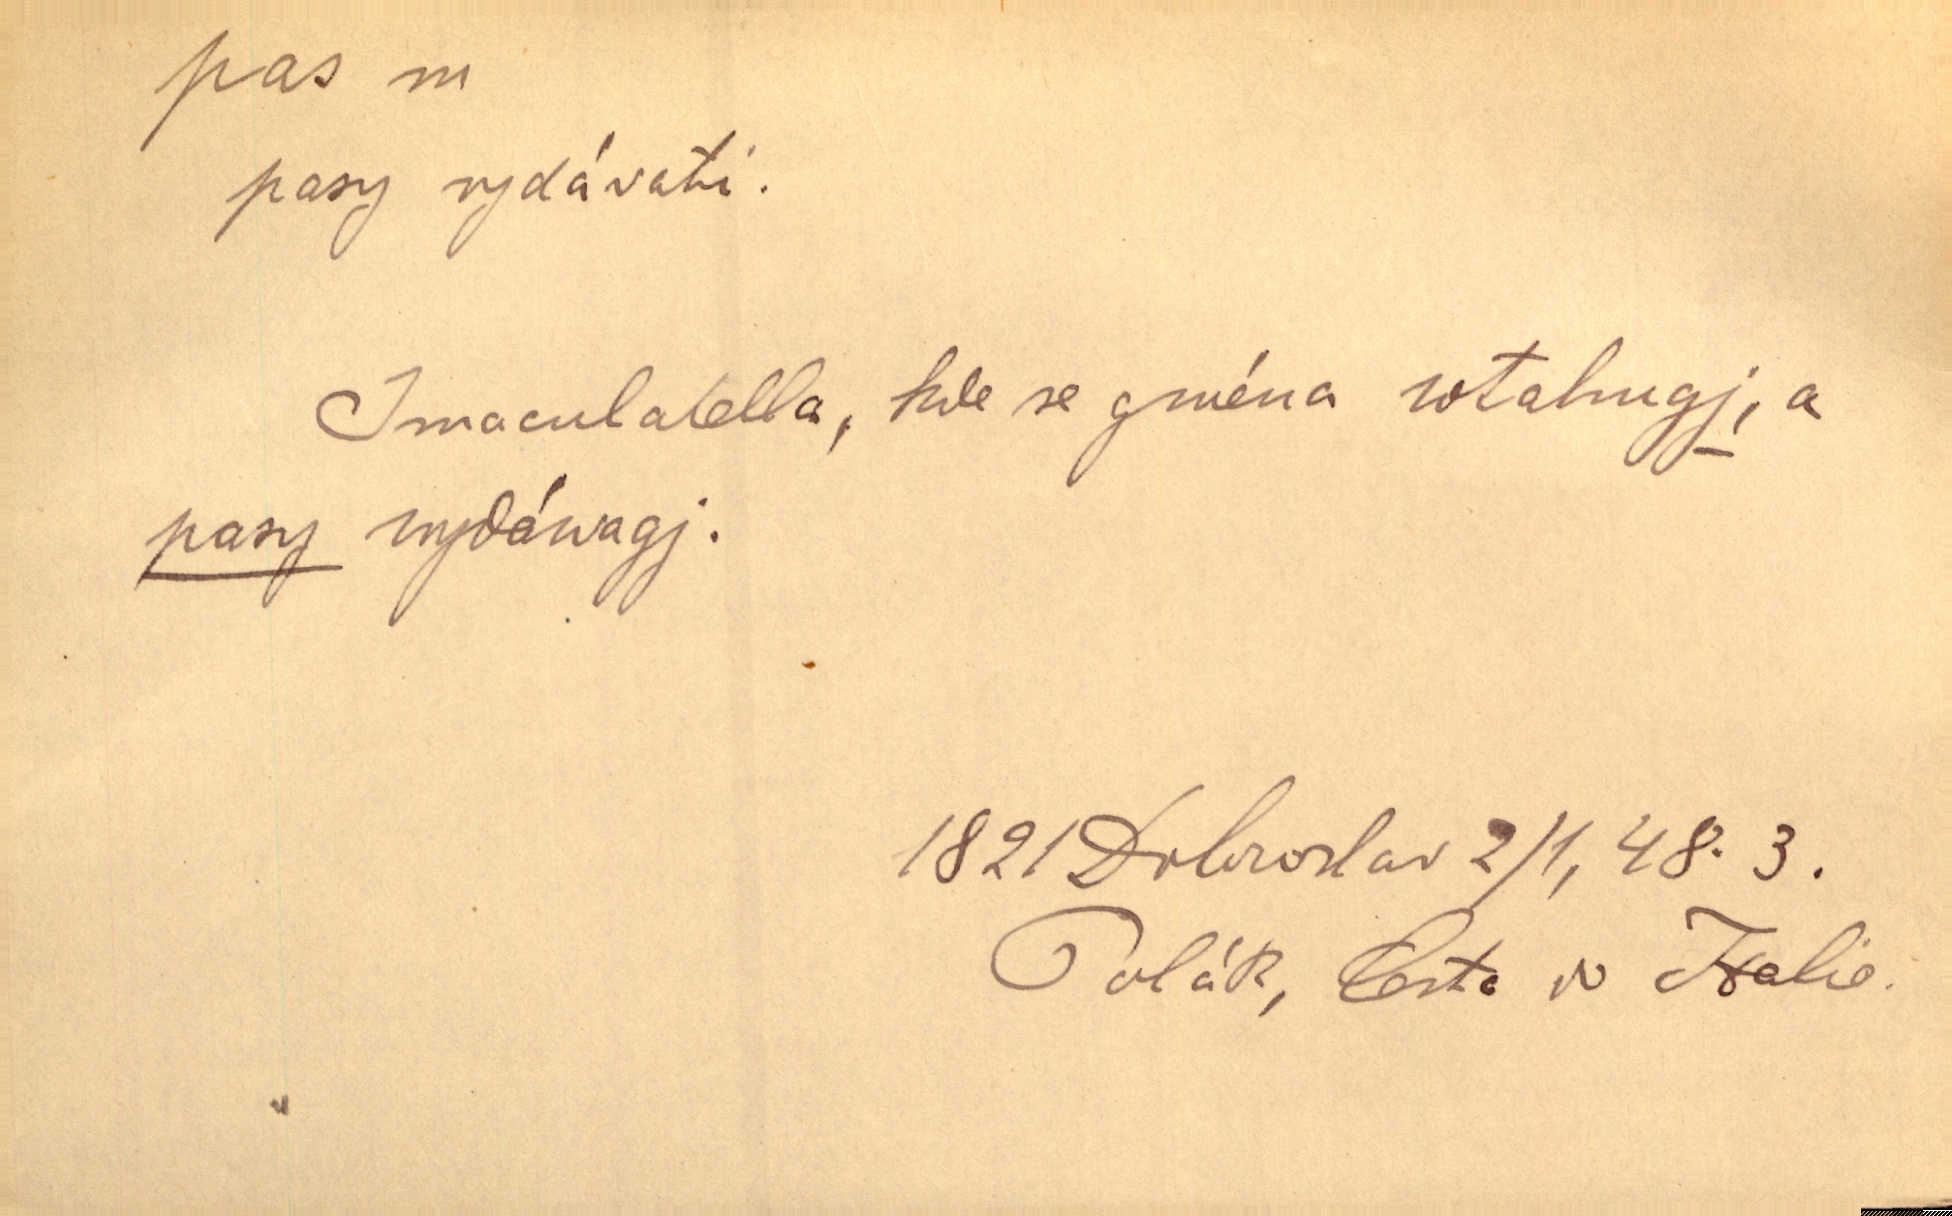 pas m
pasy vydávati.
Imaculatella, kde se gména wtahugj, a
pasy wydáwagj.
1821 Dobroslav 2/1, 48. 3.
Polák, Cesta do Italie.